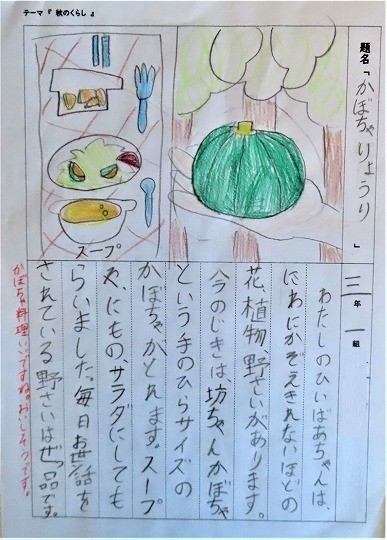 テーマ『 秋のくらし 』
題名「かぼちゃりょうり」
三年一組
スープ
わたしのひいばあちゃんは、
にわにかぞえきれないほどの
花、植物、野さいがあります。
今のじきは、坊ちゃんかぼちゃ
という手のひらサイズの
かぼちゃがとれます。スープ
や、にもの、サラダにしても
らいました。毎日お世話を
されている野さいはぜっ品です。
かぼちゃ料理いいですね。おいしそうです。